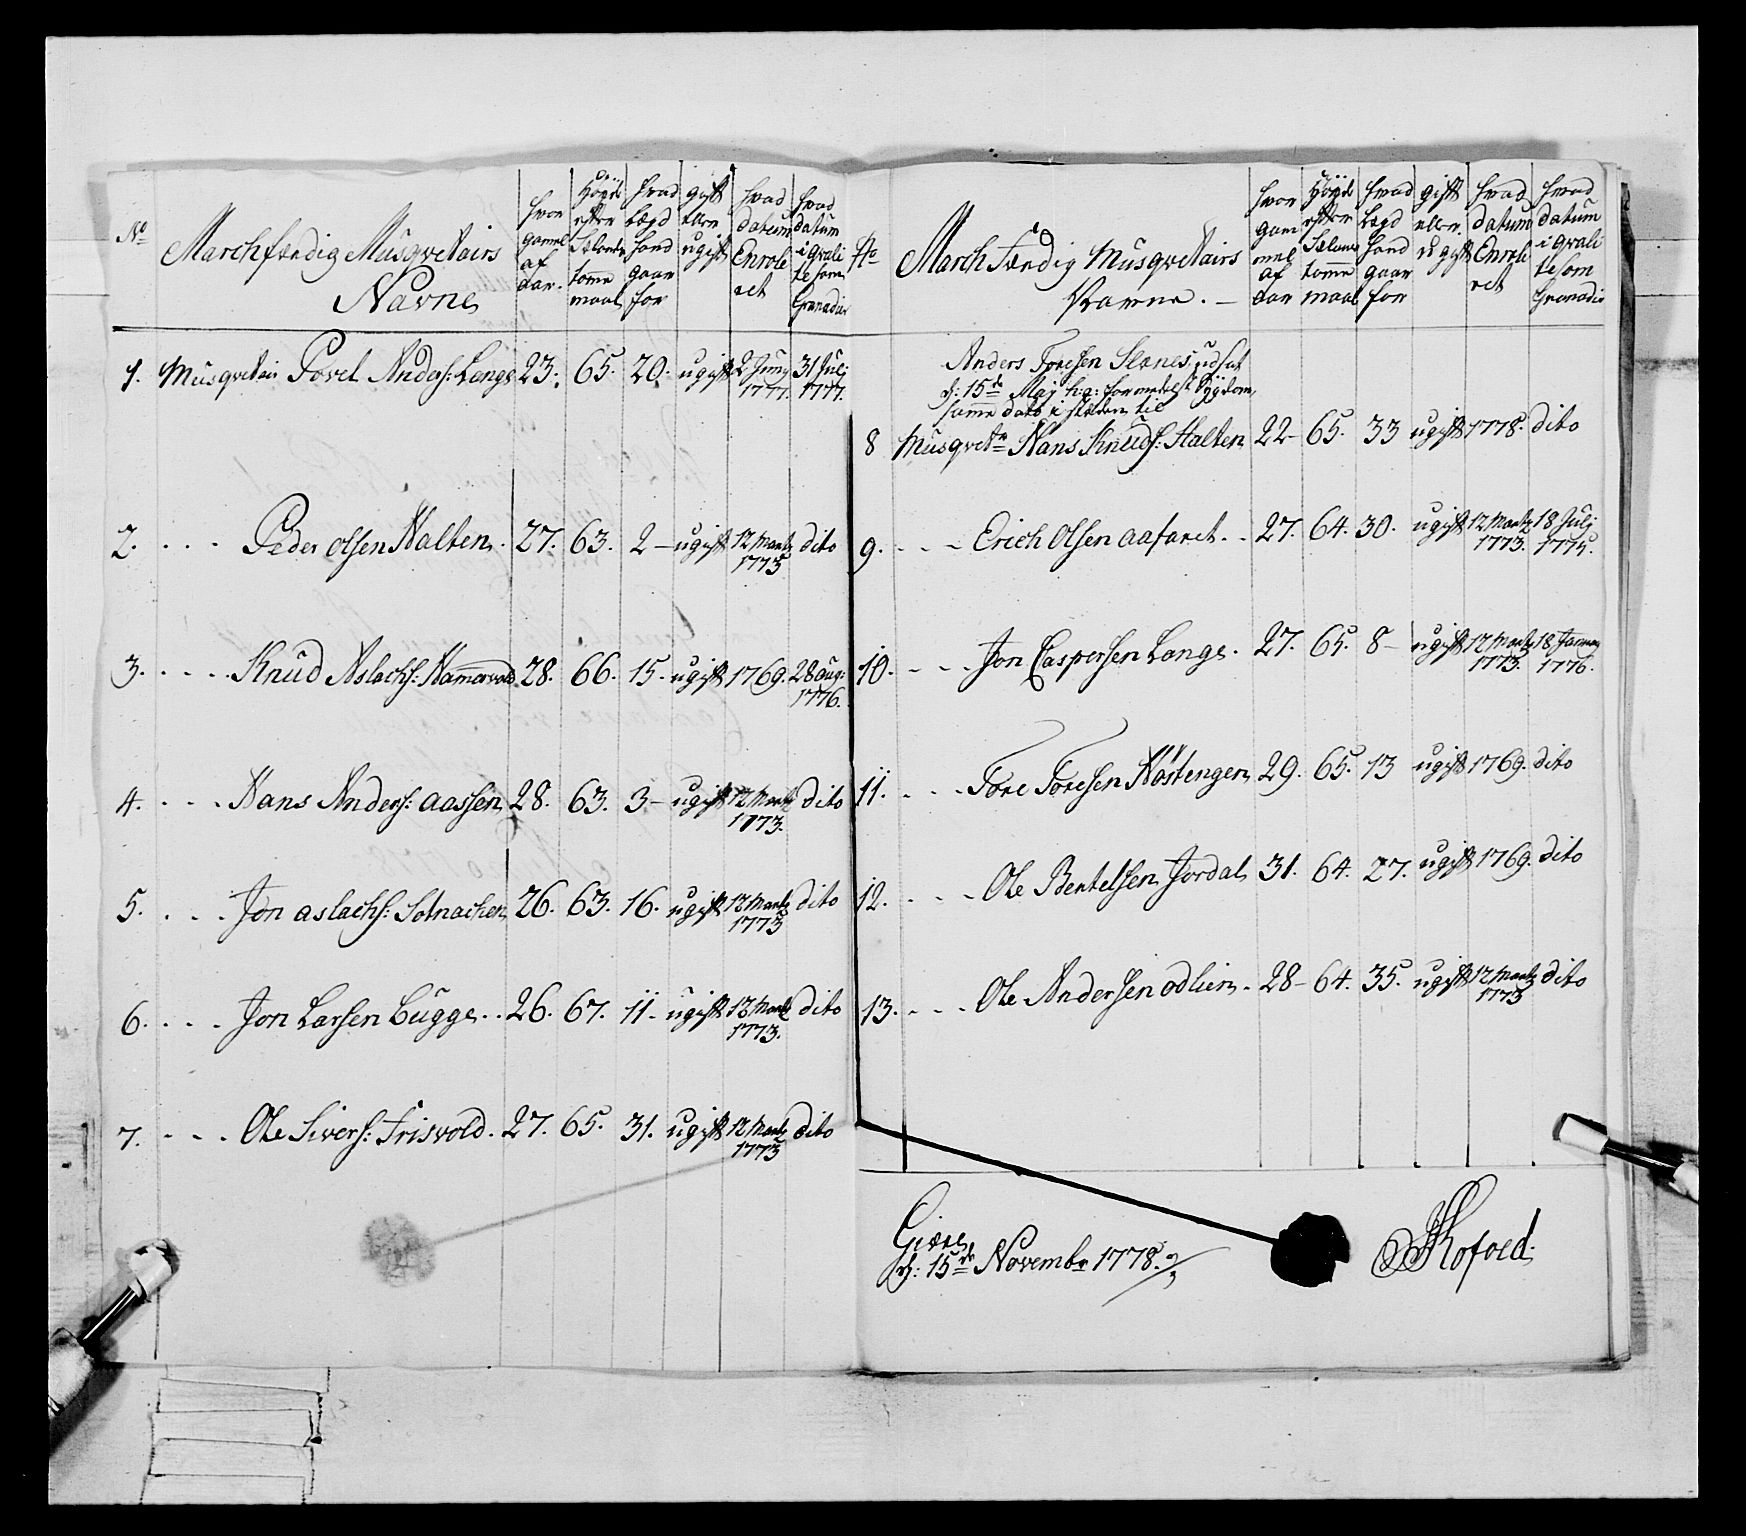 No
Marchfærdig Müsqvetairs
Navne
hvor gammel af Aar.
Höyde efter Sælands tomme maal
hvad Lægd hand gaar for
gift eller ugift
hvad datum Enrolleret
hvad datum i qvalite som Granadier
1. Müsqvetair Povel Anders: Lange 23. 65. 20. ugift 2 Junij 1777. 31 Julj 1777.
2. Peder Olsen Halten. 27. 63. 2 – ugift 12 Martz 1773 dito
3. Knüd Aslachs: Hammervold 28. 66. 15. ugift 1769. 28 Aug: 1776.
4. Hans Anders: Aassen 28. 63. 3 – ugift 12 Martz 1773. dito
5. Jon Aslachs: Solnachen 26. 63. 16. ugift 12 Martz 1773 dito
6. Jon Larsen Bügge. 26. 67. 11 – ugift 12 Martz 1773. dito
7. Ole Sivers: Frisvold. 27. 65. 31. ugift 12 Martz 1773 dito
No
March Færdig Müsqvetairs
Navne. –
hvor gammel af Aar
Höyde efter Sælands tomme maal
hvad Lægd hand gaar for
gift eller ugift
hvad datum Enrolleret
hvad datum i qvalite som Granadier
Anders Toresen Slenes, udsat
d: 15de Maj h: a: formedelst Sygdom,
samme dato i steden til
8 Müsqvetr Hans Knüds: Halten 22 – 65. 33 ugift 1778. dito
9. Erich Olsen Aafaret. 27. 64. 30. ugift 12 Martz 1773. 18 Julj 1775.
10. Jon Caspersen Lange. 27. 65. 8 – ugift 12 Martz 1773. 18 January 1776.
11. Tore Toresen Nöstengen 29. 65. 13 ugift 1769. dito
12. Ole Bertelsen Jordal 31. 64. 27. ugift 1769. dito
13. Ole Andersen Odlien. 28 – 64. 35. ugift 12 Martz 1773 dito
d: 15de Novembr 1778.
Kofoed.